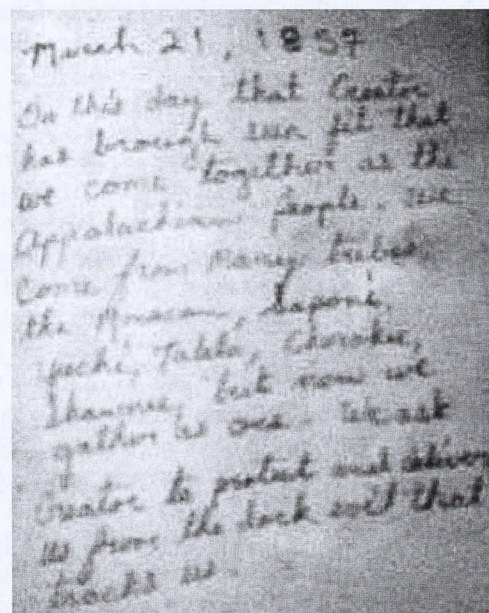 March 21, 1857
On this day that Creator
has brough sun fit that
we come together as the
Appalachian people. We
come from Many tribes,
the Monacan, Saponi,
Yuchi, Tutelo, Cherokee,
Shawnee, but now we
gather as one. We ask
Creator to protect and deliver
us from the dark evil that
tracks us.